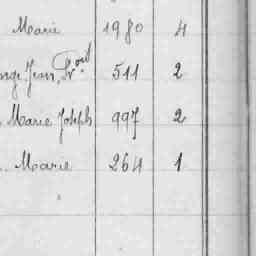 Marie 1980 4
Jean, 511 2
Marie Joseph 997 2
Marie 264 1